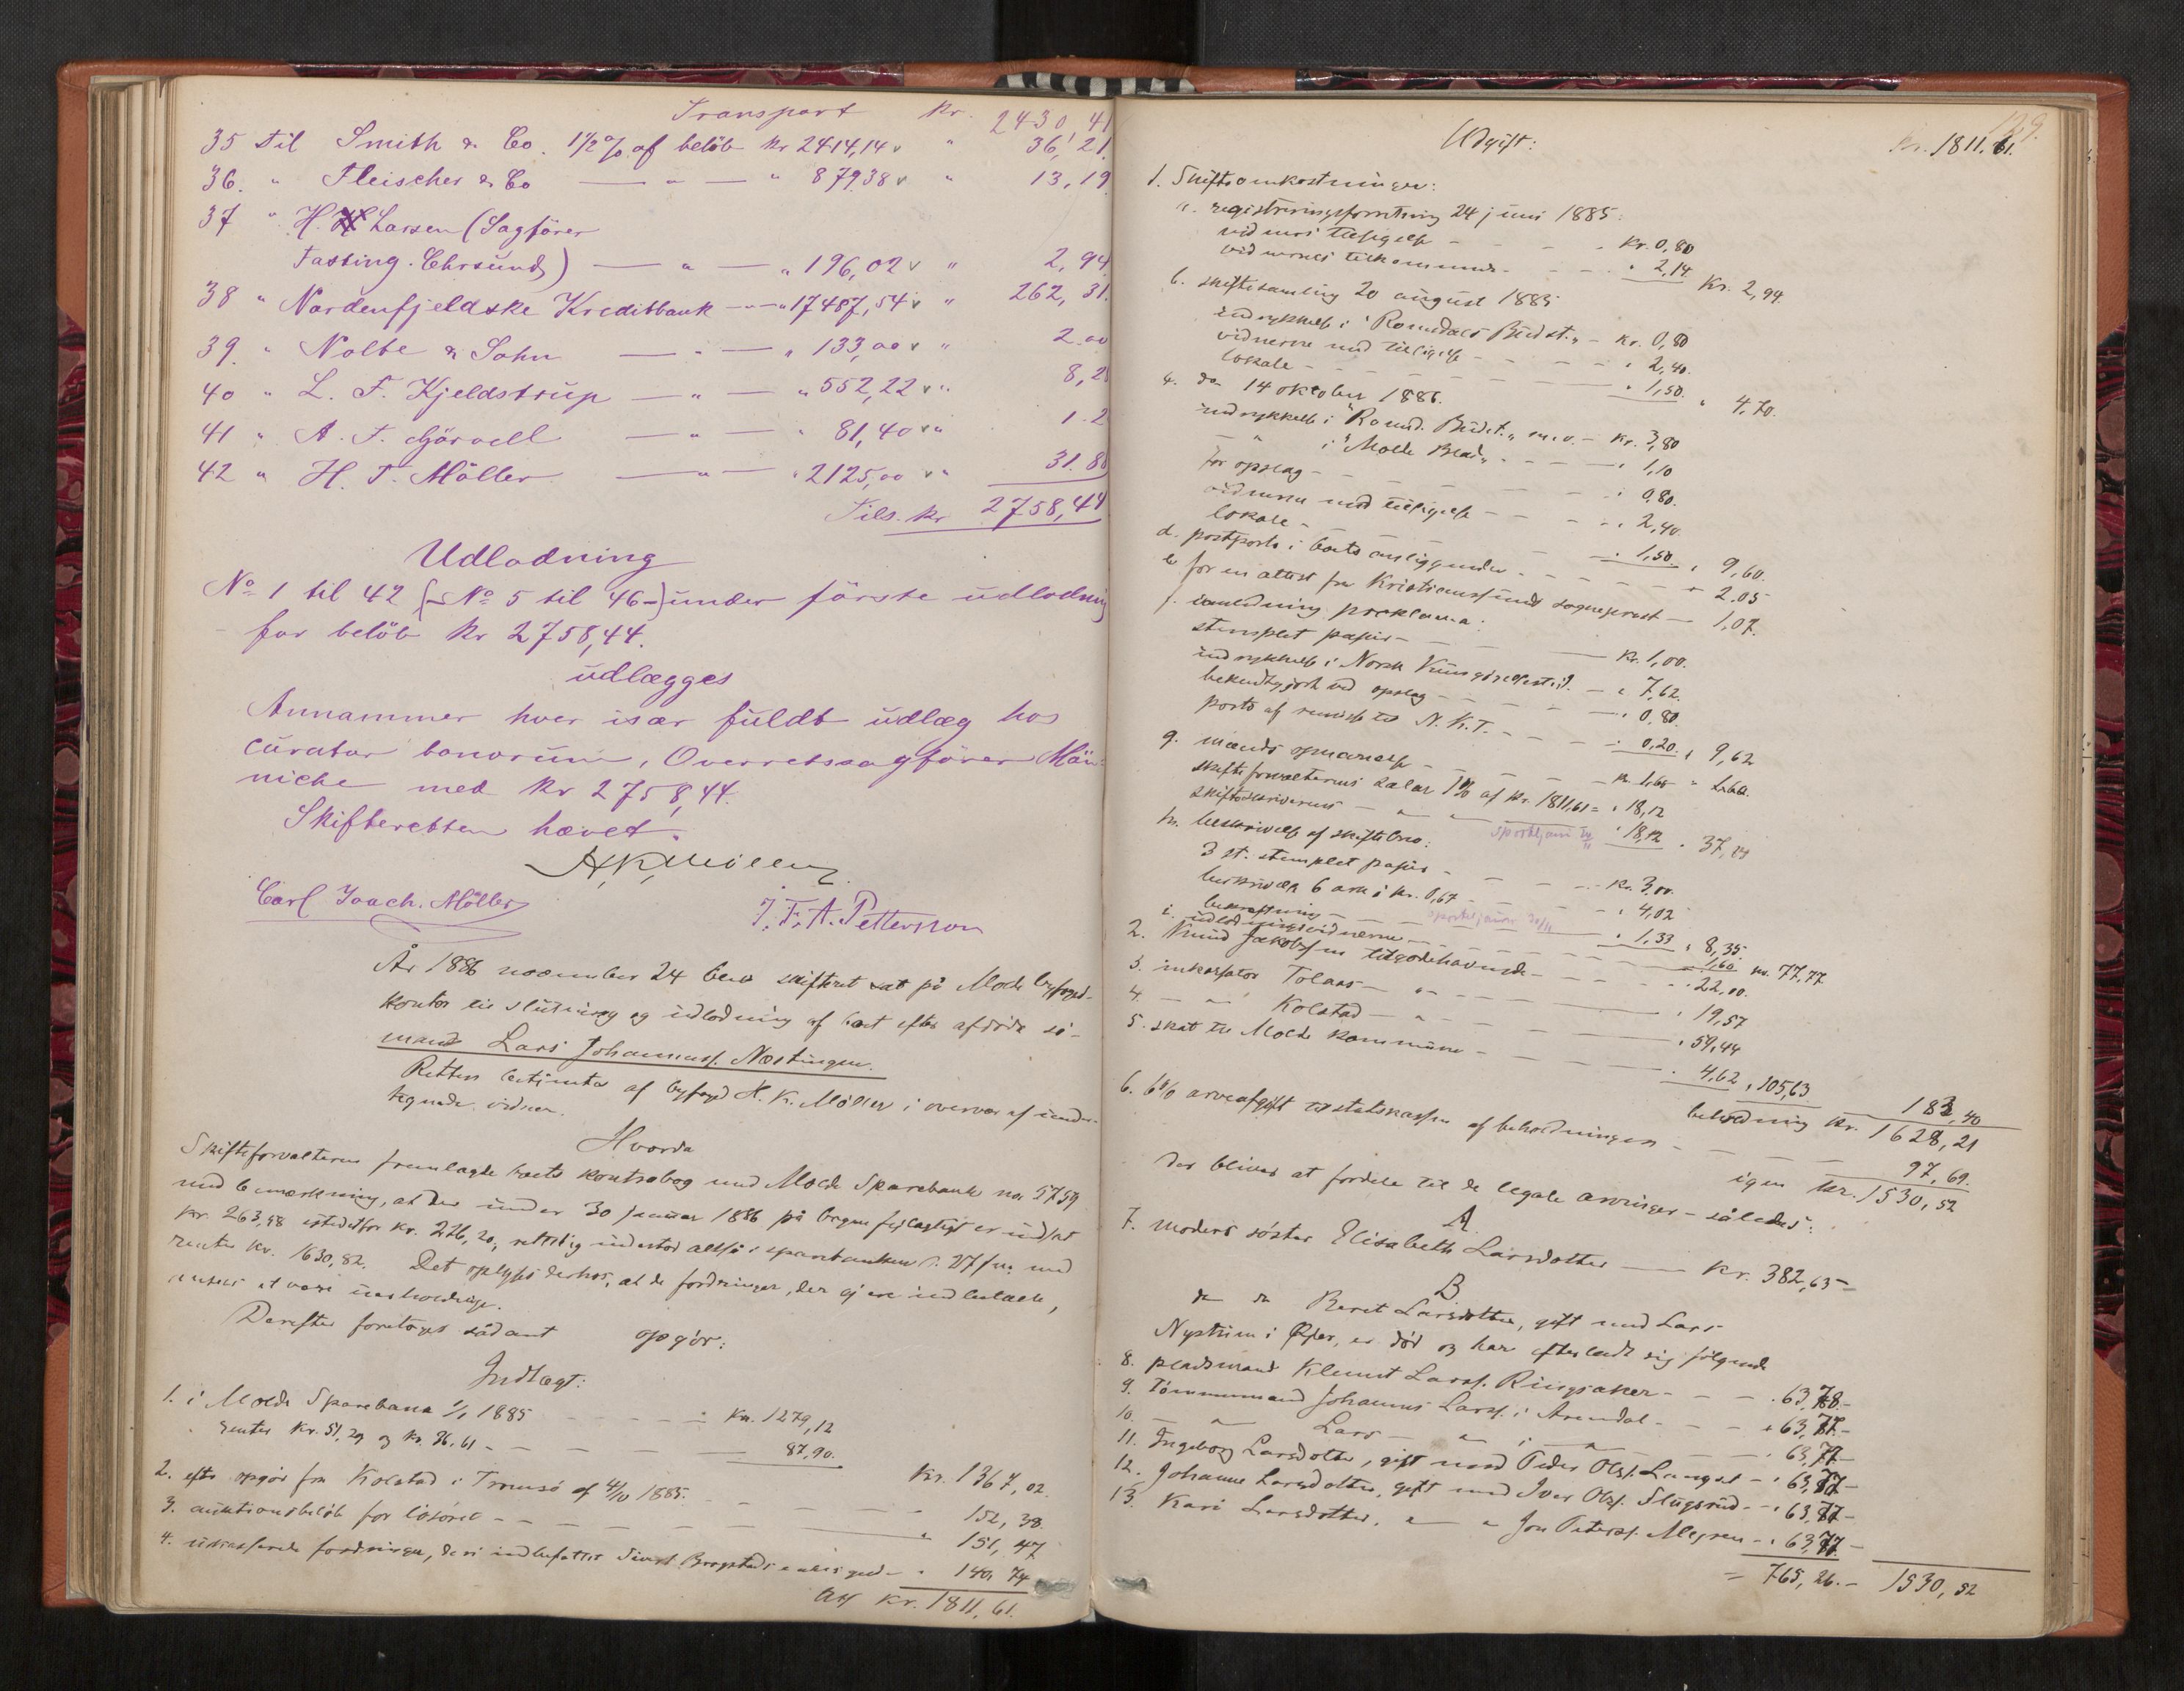 Transport Kr. 2430,41
35 til Smith & Co. 1½% af belöb Kr 2414,14 v " 36,21.
36. " Fleischer & Co — " — " 879,38 v " 13,19
37 " H. Larsen (Sagförer
Fasting. Chrsund) — " — " 196,02 v " 2,94
38 " Nordenfjeldske Kreditbank — " — " 17487,54 v " 262,31.
39. " Nolte & Sohn — " — " 133,00 v " 2.00
40 " L. F. Kjeldstrup — " — " 552,22 v " 8,2
41 " A. F. Gjörvell — " — " 81,40 v " 1.2
42 " H. T. Möller — " — " 2125,00 v " 31.8
Tils. kr 2758,44
Udlodning
No 1 til 42 (- No 5 til 46 -) under förste udlodning
for belöb Kr 2758,44.
udlægges
Annammer hver især fuldt udlæg hos
curator bonorum, Overretssagförer Mön-
niche med Kr 2758,44.
Skifteretten hævet.
H. K. Möller
Carl Joach. Möller
J. F. A. Petterson
År 1886 november 24 blev skifteret sat på Molde byfoged-
kontor til slutning og udlodning af boet efter afdöde sö-
mand Lars Johanness. Næstingen.
Retten betjentes af byfoged H. K. Möller i overvær af under-
tegnede vidner.
Hvorda
Skifteforvalteren fremlagde boets kontrabog med Molde Sparebank no 5759
med bemærkning, at der under 30 januar 1886 på bogen fejlagtigt er indsat
kr. 263,98 istedetfor kr. 226,20, rettelig indestod altså i sparebanken 27 f. m. med
renter kr. 1630,82. Det oplyses derhos, at de fordringer, der ej ere indbetalte,
ansees at være uerholdelige.
Derefter foretoges sådant opgör:
Indtægt:
1. i Molde Sparebank 1/1 1885 - - - - kr. 1279,12
renter kr. 51,29 og kr. 36,61 - - - 87,90. kr. 1367,02.
2. efter opgör fra Kolstad i Tromsö af 4/10 1885. - - - 152,38.
3. auktionsbelöb for lösöret - - - - " 151,47
4. udestående fordringer, deri indbefattet Sivert Brogstads - " 140,74
att kr. 1811,61.
129.
Udgift: kr. 1811.61.
1. Skifteomkostninger:
a. registreringsforretning 24 juni 1885:
vidners tilsigelse - - - kr. 0,80
vidnernes tilkommende - - " 2,14 kr. 2,94.
b. skiftesamling 20 august 1885
indrykkelse i "Romsdals Budst." - kr. 0,80
vidnerne med tilsigelse - - - " 2,40.
lokale - - - " 1,50. " 4,70.
c. do 14 oktober 1886.
indrykkelse i "Romsd. Budst." m. v. - kr. 3,80
— " — i "Molde Blad" - - - " 1,10
for opslag - - - " 0,80.
vidnerne med tilsigelse - - - " 2,40.
lokale - - - " 1,50. " 9,60.
d. postporto i boets anliggender - - - " 2.05
e for en attest fra Kristianssunds sogneprest — 1,07.
f. indledning proklama:
stemplet papir - — kr. 1,00.
indrykkelse i Norsk Kundgörelsestid. - " 7,62.
bekendtgjort ved opslag - - - " 0,80.
porto af remisse til N. K. T. - - - " 0,20. " 9,62
g. mands opnævnelse - - - kr. 1,60 " 1.60.
skifteforvalterens salær 1% af kr. 1811,61 = " 18,12
skifteskriverens — " — " 18,12 " 37,84
h. beskrivelse af skiftebrev:
3 st. stemplet papir - - - kr. 3,00.
beskrivelse 6 ark á kr. 0,67 - - - " 4,02
bekræftning - - - " 1,33 " 8,35.
i. udlodningsvidnerne - - - 1,60 kr. 77,77
2. Knud Jakobsens tilgodehavende - - - " 22,00.
3. inkassator Tolaas — " — " 19,57
4. — " — Kolstad — " — " 59,44
5. skat til Molde kommune - - - " 4,62 " 105,63
183,40
beholdning kr. 1628,21
6. 6% arveafgift til statskassen af beholdningen - - - 97,69.
igen kr. 1530,52
der bliver at fordele til de legale arvinger - således:
A
7. moders söster Elisabeth Larsdotter — kr. 382,63 -
B
do do Beret Larsdotter, gift med Lars
Nyström i Öyer, er död og har efterladt sig fölgende
8. pladsmand Klemet Larss. Ringsaker - - - " 63,78 -
9. tömmermand Johannes Larss. i Arendal - - - " 63,77 -
10. — " — Lars — " — i — " — " 63,77 -
11. Ingeborg Larsdotter, gift med Peder Olss. Lunget - " 63,77 -
12. Johanne Larsdotter, gift med Iver Olss. Slugsrud - " 63,77 -
13. Kari Larsdotter, " — " Jon Peterss. - " 63,77 -
= 765,26. - 1530,52